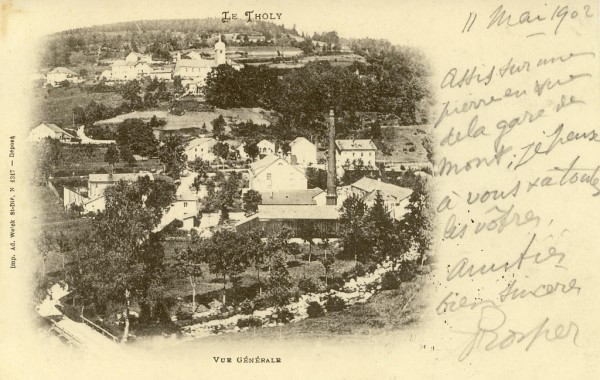 Le Tholy
11 Mai 1902
Assis sur une
pierre en vue
de la gare de
mont, je pense
à vous & à tous
les vôtres,
Amitiés
bien sincères
Prosper
Imp. Ad. Weick St-Dié, N 4317 — Déposé
Vue Générale